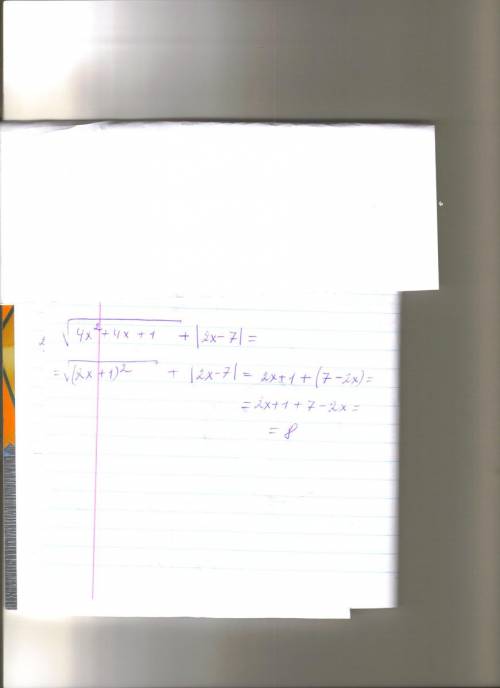 2. √(4x²+4x+1) + |2x-7| =
= √(2x+1)² + |2x-7| = 2x+1+(7-2x) =
= 2x+1+7-2x =
= 8